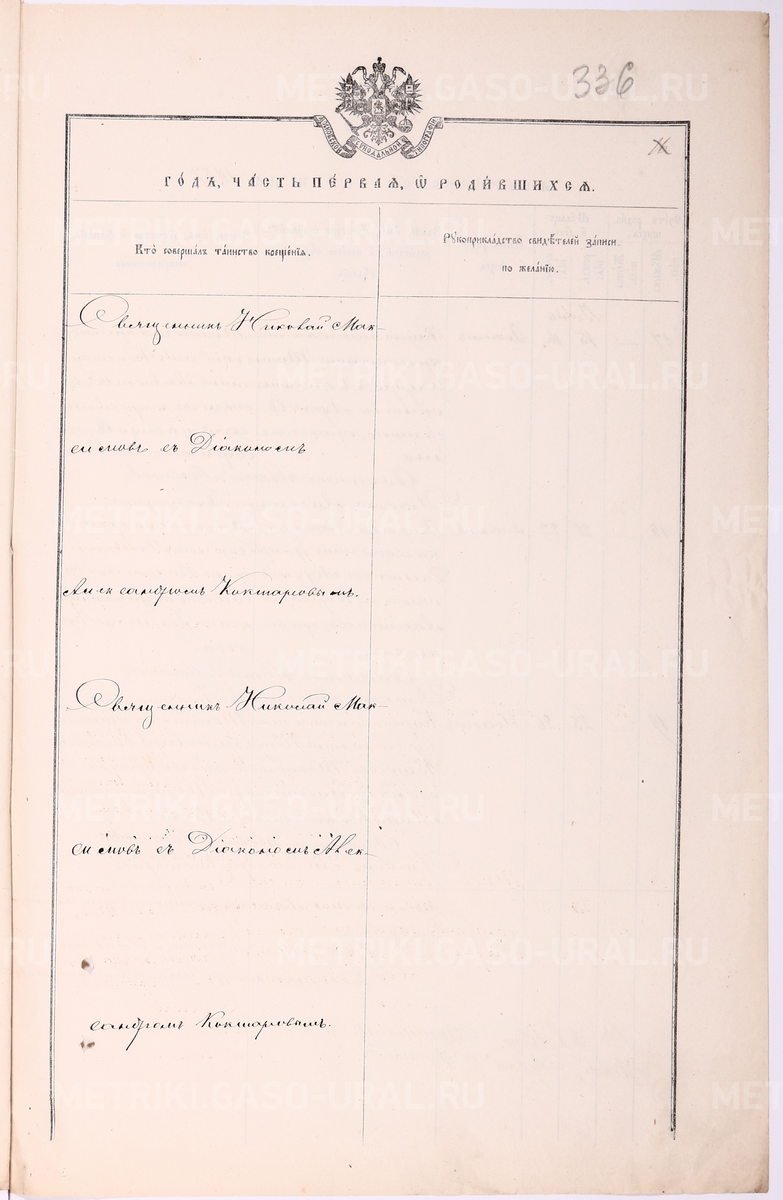 336
МОСКОВСКОЙ СѴНОДАЛЬНОЙ ТИПОГРАФІИ
ГОДЪ, ЧАСТЬ ПЕРВАЯ, Ѡ РОДИВШИХСЯ.
Кто совершалъ таинство крещенія.
Рукоприкладство свидѣтелей записи
по желанію.
Священникъ Николай Мак-
симовъ съ Діакономъ
Александромъ Кокшаровымъ.
Священникъ Николай Мак-
симовъ съ Діакономъ Алек-
сандромъ Кокшаровымъ.
METRIKI.GASO-URAL.RU